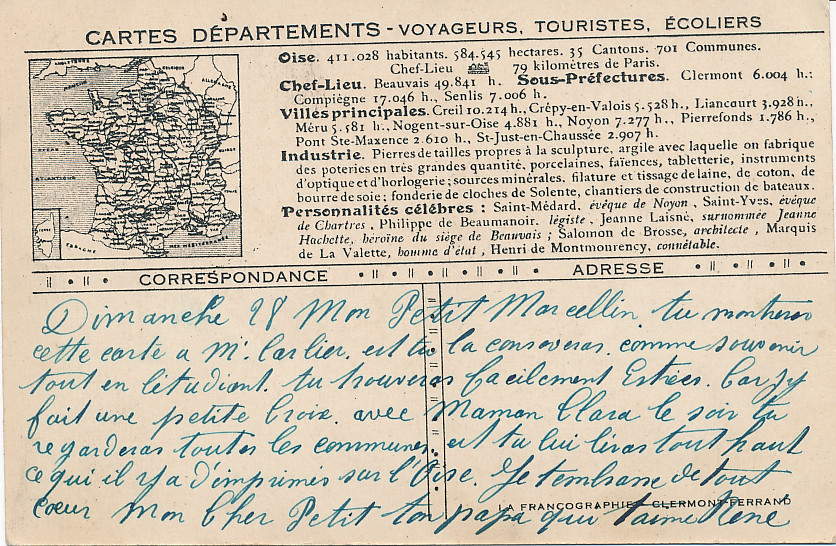 CARTES DÉPARTEMENTS - VOYAGEURS, TOURISTES, ÉCOLIERS
Oise. 411.028 habitants. 584.545 hectares. 35 Cantons. 701 Communes.
Chef-Lieu 79 kilomètres de Paris.
Chef-Lieu. Beauvais 49.841 h. Sous-Préfectures. Clermont 6.004 h.:
Compiègne 17.046 h., Senlis 7.006 h.
Villes principales. Creil 10.214 h., Crêpy-en-Valois 5.528 h., Liancourt 3.928 h.,
Méru 5.581 h., Nogent-sur-Oise 4.881 h., Noyon 7.277 h., Pierrefonds 1.786 h.,
Pont Ste-Maxence 2.610 h., St-Just-en-Chaussée 2.907 h.
Industrie. Pierres de tailles propres à la sculpture, argile avec laquelle on fabrique
des poteries en très grandes quantité, porcelaines, faïences, tabletterie, instruments
d'optique et d'horlogerie; sources minérales. filature et tissage de laine, de coton, de
bourre de soie; fonderie de cloches de Solente, chantiers de construction de bateaux.
Personnalités célèbres : Saint-Médard, évêque de Noyon, Saint-Yves, évêque
de Chartres, Philippe de Beaumanoir. légiste, Jeanne Laisné, surnommée Jeanne
Hachette, héroïne du siège de Beauvais; Salomon de Brosse, architecte, Marquis
de La Valette, homme d'état, Henri de Montmourency, connétable.
ANGLETERRE
BELGIQUE
ALLEMAGNE
MANCHE
OCEAN
ATLANTIQUE
ESPAGNE
MER MEDITERRANEE
CORRESPONDANCE ADRESSE
Dimanche 28 Mon Petit Marcellin tu montreras
cette carte a Mr Carlier. est tu la conserveras. comme souvenir
tout en l'étudiant. tu trouveras facilement Estrées. Car j'y
fait une petite Croix. avec Maman Clara le soir tu
regarderas toutes les communes. est tu lui liras tout haut
ce qui il y a d'imprimés sur l'Oise. Je t'embrasse de tout
coeur Mon Cher Petit ton papa qui t'aime René
LA FRANCOGRAPHIE - CLERMONT-FERRAND